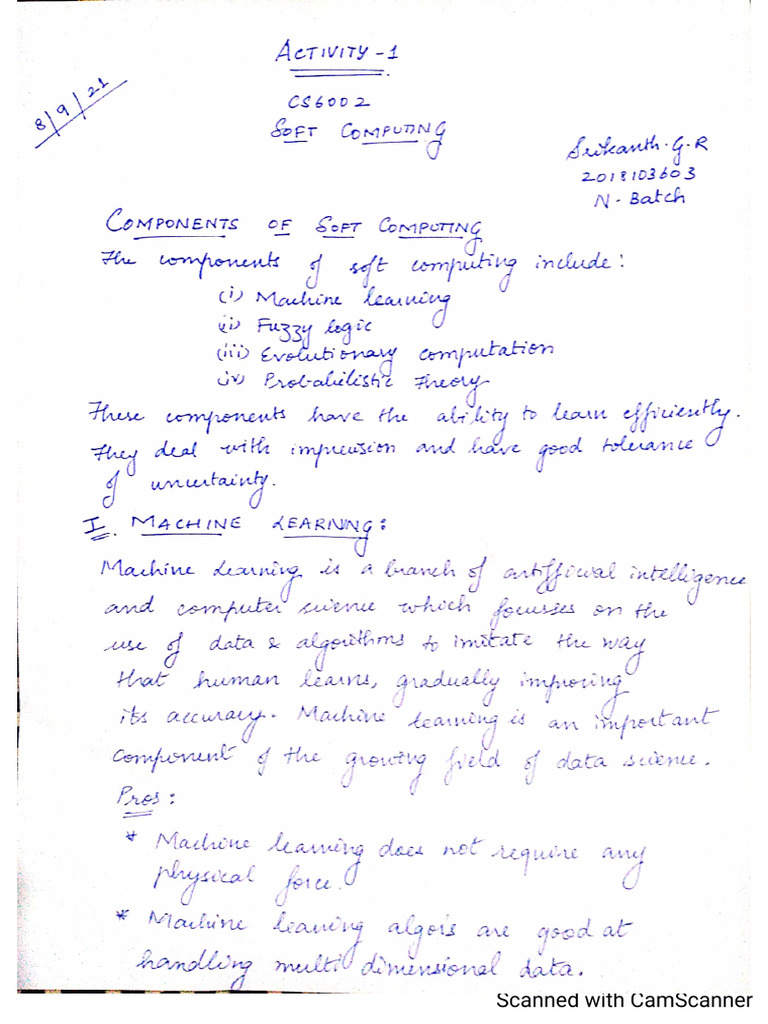 ACTIVITY - 1
8/9/21
CS6002
SOFT COMPUTING
Srikanth. G. R
2018103603
N - Batch
COMPONENTS OF SOFT COMPUTING
The components of soft computing include:
(i) Machine learning
(ii) Fuzzy logic
(iii) Evolutionary computation
(iv) Probabilistic Theory
These components have the ability to learn efficiently.
They deal with imprecision and have good tolerance
of uncertainty.
I. MACHINE LEARNING:
Machine Learning is a branch of artificial intelligence
and computer science which focusses on the
use of data & algorithms to imitate the way
that human learns, gradually improving
its accuracy. Machine learning is an important
component of the growing field of data science.
Pros:
* Machine learning does not require any
physical force.
* Machine learning algors are good at
handling multi dimensional data.
Scanned with CamScanner